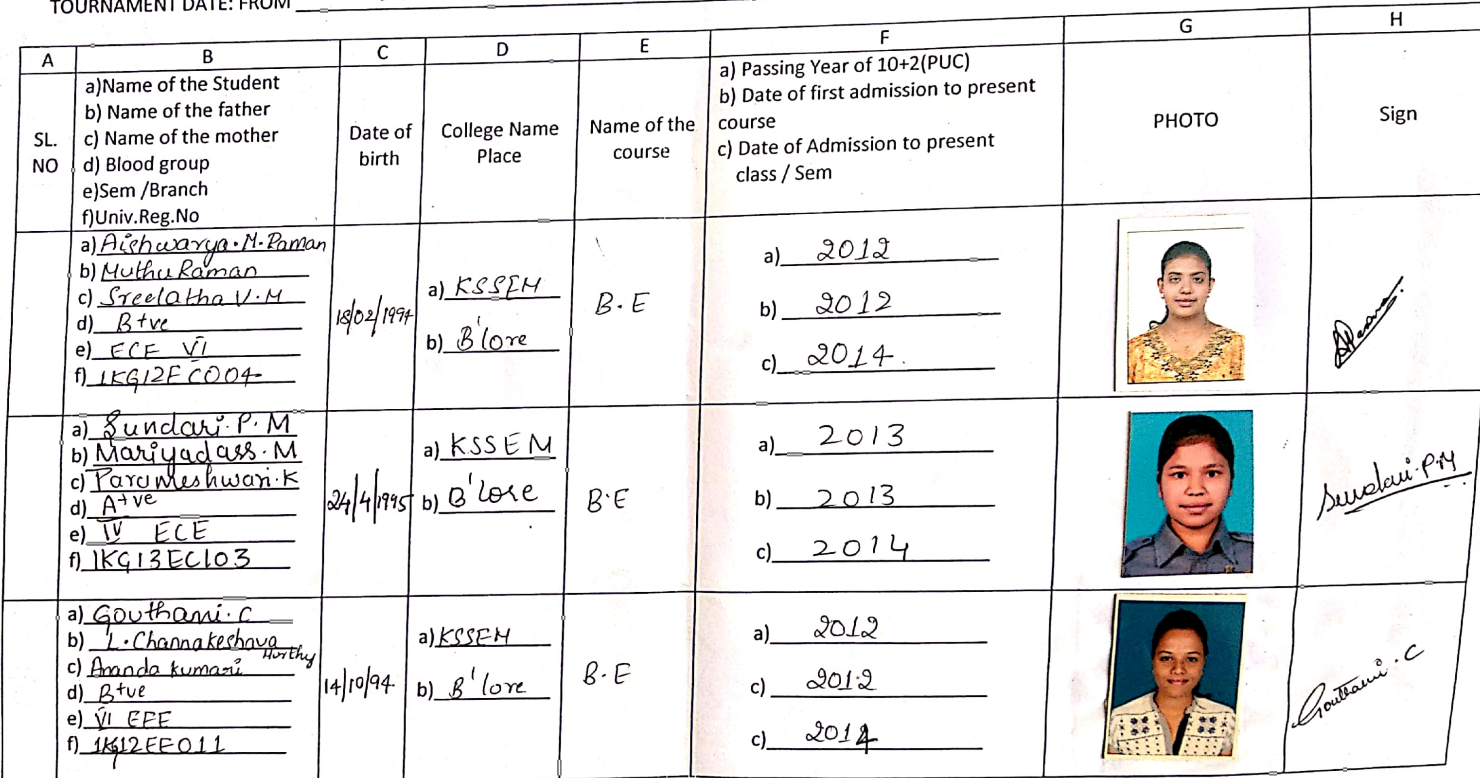 TOURNAMENT DATE: FROM
A B C D E F G H
SL.
NO
a)Name of the Student
b) Name of the father
c) Name of the mother
d) Blood group
e)Sem /Branch
f)Univ.Reg.No
Date of
birth
College Name
Place
Name of the
course
a) Passing Year of 10+2(PUC)
b) Date of first admission to present
course
c) Date of Admission to present
class / Sem
PHOTO
Sign
a) Aishwarya.M.Raman
b) Muthu Raman
c) Sreelatha V.M
d) B+ve
e) ECE VI
f) 1KG12EC004
18/02/1994
a) KSSEM
b) B'lore
B.E
a) 2012
b) 2012
c) 2014.
a) Sundari.P.M
b) Mariyadass.M
c) Parameshwari.K
d) A+ve
e) IV ECE
f) 1KG13EC103
24/4/1995
a) KSSEM
b) B'lore
B.E
a) 2013
b) 2013
c) 2014
Sundari.P.M
a) Gouthami.C
b) L.Channakeshava
Murthy
c) Ananda kumari
d) B+ve
e) VI EEE
f) 1KG12EE011
14/10/94
a) KSSEM
b) B'lore
B.E
a) 2012
c) 2012
c) 2014
Gouthami.C